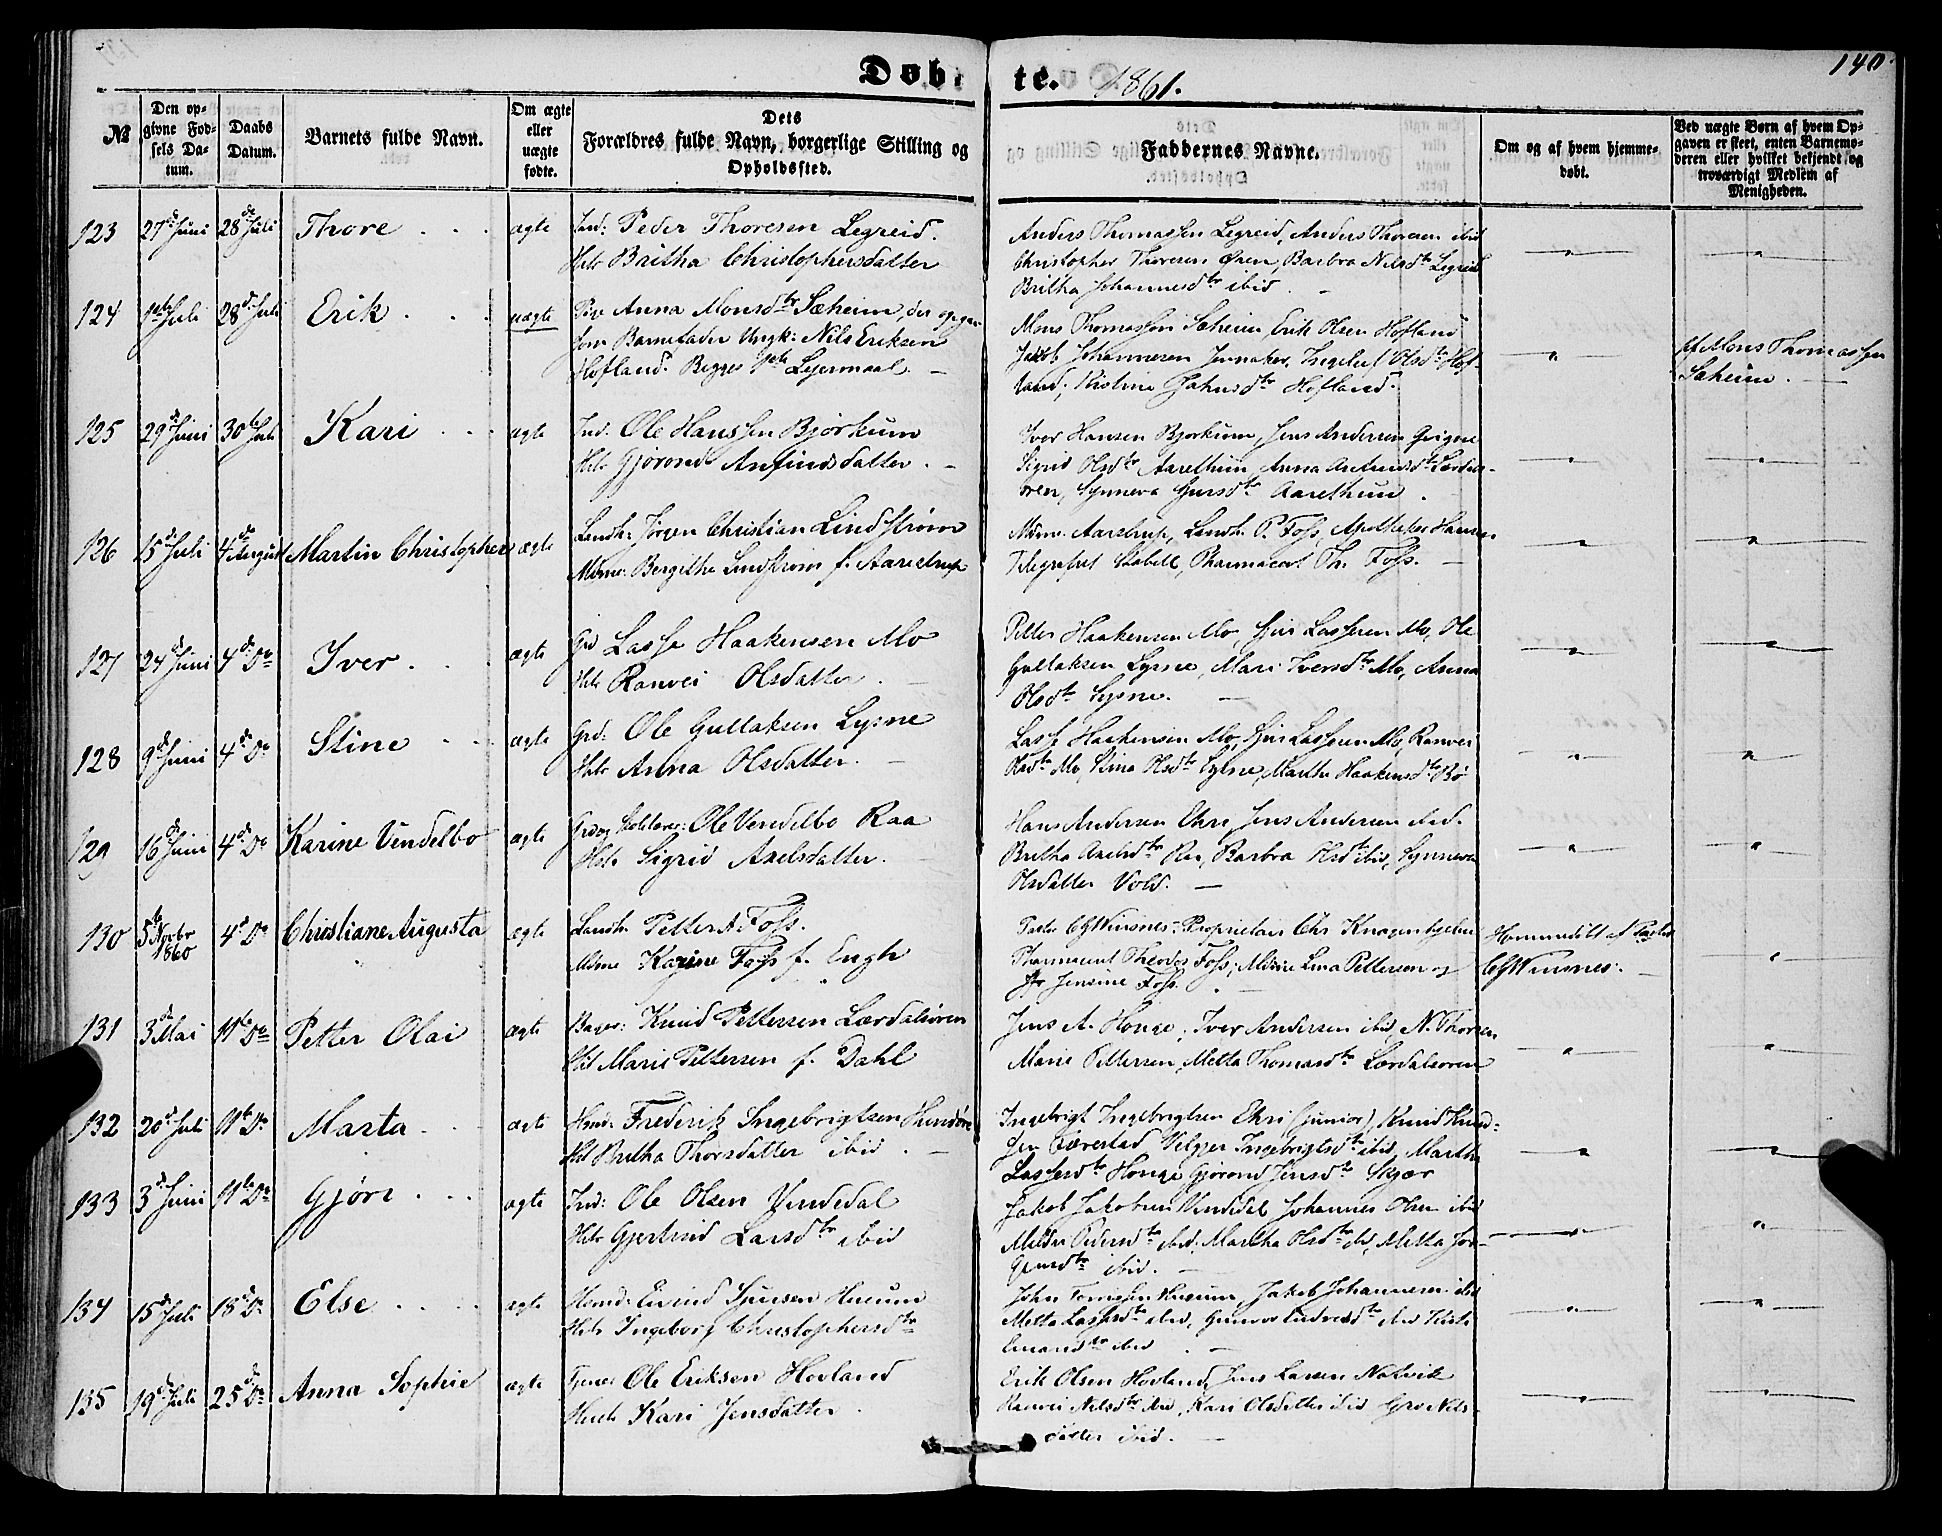 Døbte. 1861.
140.
№
Den opgivne Fødsels Datum.
Daabs Datum.
Barnets fulde Navn.
Om ægte eller uægte fødte.
Dets Forældres fulde Navn, borgerlige Stilling og Opholdssted.
Faddernes Navne.
Om og af hvem hjemmedøbt.
Ved uægte Børn af hvem Opgaven er skeet, enten Barnemoderen eller hvilket bekjendt og troværdigt Medlem af Menigheden.
123 27de Juni 28de Juli Thore ægte Ind: Peder Thoresen Legreid.
Hstr Britha Christophersdatter
Anders Thomassen Legreid, Anders Thoresen ibid
Christopher Thoresen Øren, Barbra Nilsdtr Legreid
Britha Johannesdtr ibid.
124 1ste Juli 28de Juli Erik uægte Pige Anna Monsdtr Sæheim, der opgav
som Barnefader Ungk: Nils Eriksen
Hofland. Begges 1ste Lejermaal.
Mons Thomassen Sæheim, Erik Olsen Hofland
Jakob Johannesen, Ingebel Olsdtr Hofland, Kistine Hofland.
af Mons Thomassen
Sæheim.
125 29de Juni 30te Juli Kari ægte Ind: Ole Hanssen Bjørkum
Hstr Gjørond Anfindsdatter.
Iver Hansen Bjørkum, Jens Andersen Qvigne
Sigrid Olsdtr Aarethun, Anna Anfindsdtr Lærdalsøren, Synneva Aarethun
126 15de Juli 4de August Martin Christopher ægte Landh: Jørgen Christian Lindstrøm
Mdme: Bergithe Lindstrøm f. Aarestrup
Mdme. Aarestrup, Landh. P. Foss, Apotheker Hansen
Telegrafist, Pharmaceut Th. Foss.
127 24de Juni 4de Do Iver ægte Grd Lasse Haakensen Mo
Hstr Ranvei Olsdatter.
Petter Haakensen Mo, Lassesen Mo, Ole
Gullaksen Lysne, Mari Iversdtr Mo, Anna
Olsdtr Lysne.
128 9de Juni 4de Do Stine ægte Grd: Ole Gullaksen Lysne
Hstr Anna Olsdatter.
Lasse Haakensen Mo, Lassesen Mo, Ranvei
Olsdtr Mo, Olsdtr Lysne, Marthe Haakensdtr Bø
129 16de Juni 4de Do Karine Vendelbo ægte Grd og Skolelærer: Ole Vendelbo Raa
Hstr Sigrid Axelsdatter.
Hans Andersen Ehri, Jens Andersen ibid.
Britha Axelsdtr Raa, Barbra Olsdtr ibid, Synneva
Olsdatter Vold.
130 5te Novbr 1860 4de Do Christiane Augusta ægte Landh: Petter A. Foss.
Mdme Karine Foss f. Engh
Pastor Winsnes, Proprietær Chr Knagenhjelm
Pharmaceut Theodor Foss, Mdme Lina Pettersen og
Jensine Foss.
Hjemmedøbt af Pastor
Winsnes.
131 3de Mai 11te Do Petter Olai ægte Bager: Knud Pettersen Lærdalsøren
Hst Marie Pettersen f. Dahl
Jens A. Honge, Iver Andersen ibid, N. Thorsen
Marie Pettersen, Metta Thomasdtr Lærdalsøren
132 20de Juli 11te Do Marta ægte Hmd: Frederik Ingebrigtsen
Hst Britha Thorsdatter ibid.
Ingebrigt Ingebrigtsen Ehri (junior), Knud Knudsen, Ingebrigtsdtr ibid, Martha
Lassesdtr Honge, Gjørond Jensdtr Skjær
133 3de Juni 11te Do Gjøri ægte Ind: Ole Olsen Vindedal
Hstr Gjertrud Larsdtr ibid
Jakob Jakobsen Vindedal, Johannes Olsen ibid
Pedersdtr ibid, Martha Olsdtr ibid, Metta Jørgensdtr ibid.
134 15de Juli 18de Do Else ægte Hmd: Eivind Sjursen Husum
Hstr Ingeborg Christophersdtr
John Husum, Jakob Johannesen ibid
Metta Lassesdtr ibid, Gunvor ibid
Einarsdtr ibid
135 19de Juli 25de Do Anna Sophie ægte Tjener Ole Eriksen Hovland
Hustr Kari Jensdatter.
Erik Olsen Hovland, Jens Larsen Natvik
Ranvei Nilsdtr ibid, Kari Olsdatter ibid, Gro Nilsdatter ibid.